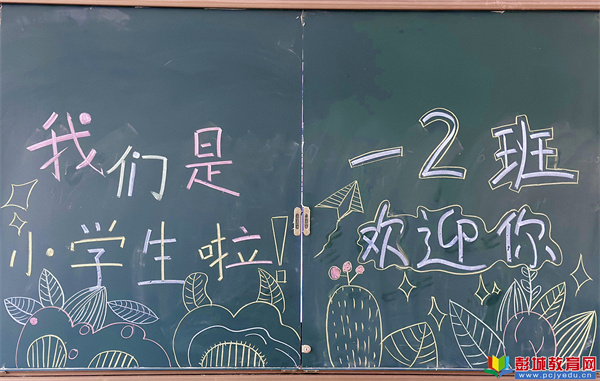 我们是
小学生啦!
一2班
欢迎你
彭城教育网
www.pcjyedu.cn